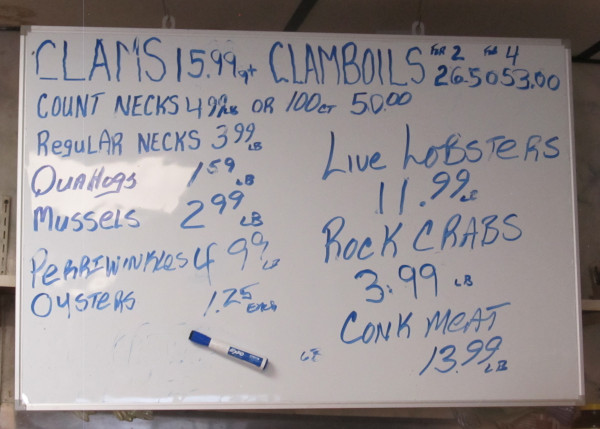 CLAMS 15.99 qt CLAMBOILS FOR 2 26.50 FOR 4 53.00
COUNT NECKS 4.99 LB OR 100 CT 50.00
REGULAR NECKS 3.99 LB
Quahogs 1.59 LB
Mussels 2.99 LB
PERRIWINKLES 4.99 LB
OYSTERS 1.25 EACH
Live LOBSTERS
11.99 LB
ROCK CRABS
3.99 LB
CONK MEAT
13.99 LB
EXPO